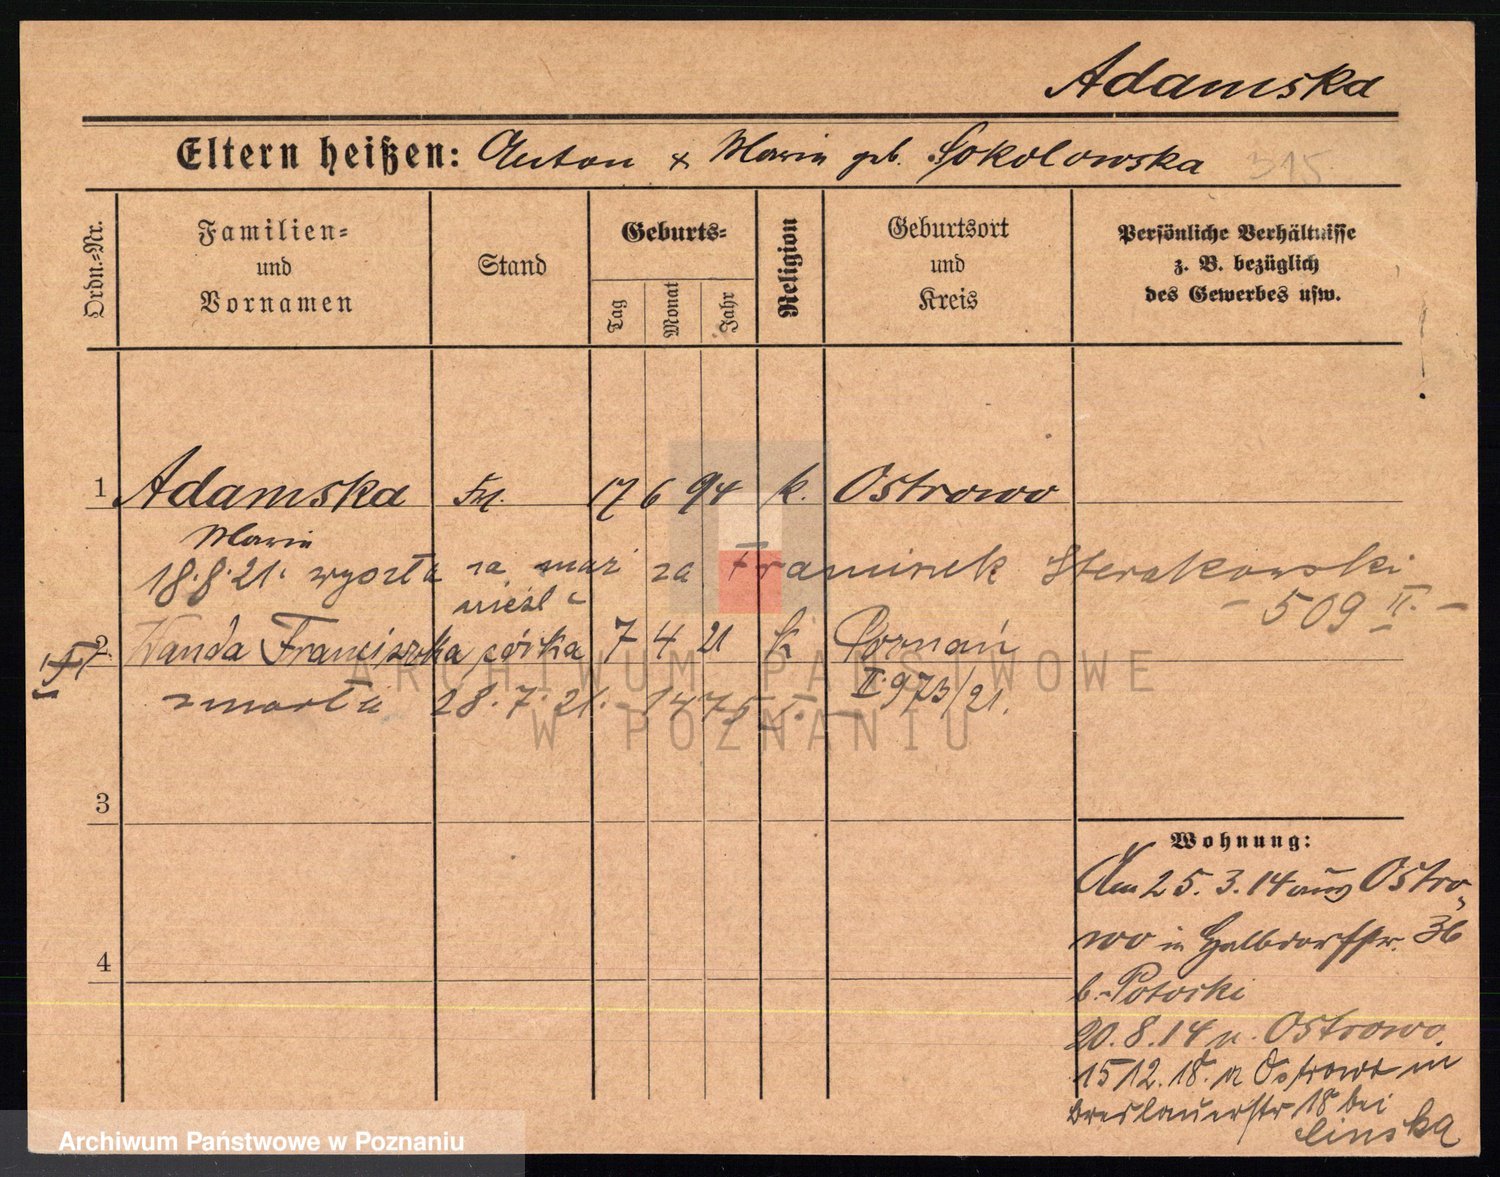 Adamska
Eltern heißen: Anton + Maria geb. Sokolowska 315
Ordn.-Nr.
Familien- und Vornamen
Stand
Geburts-
Tag
Monat
Jahr
Religion
Geburtsort und Kreis
Persönliche Verhältnisse z. B. bezüglich des Gewerbes usw.
1 Adamska Frl. 17 6 94 k. Ostrowo
Maria
18.8.21. wyszła za mąż za Franciszek Sierakowski
nieśl - 509 II. -
2 Wanda Franciszka córka 7 4 21 k Poznań
zmarła 28.7.21. - 1475 II 973/21.
3
4
Wohnung:
Am 25.3.14 aus Ostro-
wo in Halbdorfstr. 36
b. Potocki
20.8.14 n. Ostrowo.
15 12. 18. v Ostrowo in
Breslauerstr 18 bei
ARCHIWUM PAŃSTWOWE
W POZNANIU
Archiwum Państwowe w Poznaniu